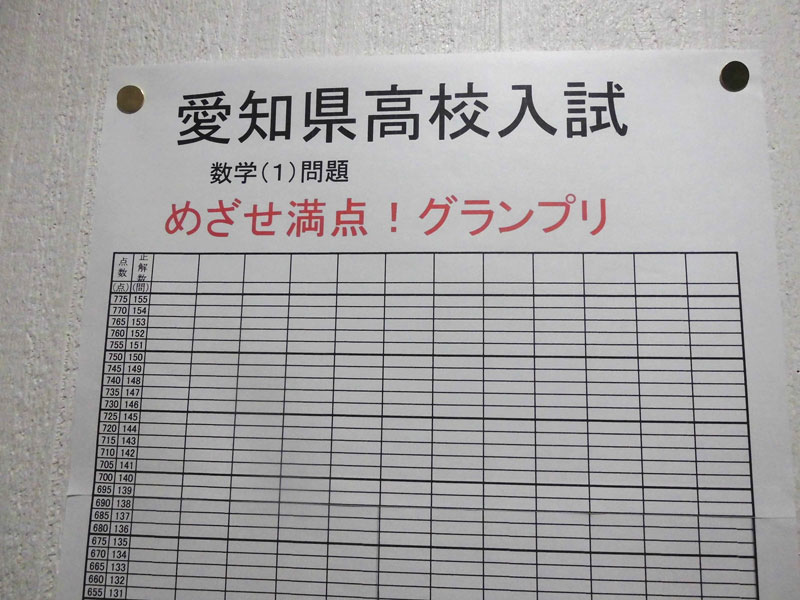 愛知県高校入試
数学(1)問題
めざせ満点！グランプリ
点数 正解数
(点) (問)
775 155
770 154
765 153
760 152
755 151
750 150
745 149
740 148
735 147
730 146
725 145
720 144
715 143
710 142
705 141
700 140
695 139
690 138
685 137
680 136
675 135
670 134
665 133
660 132
655 131